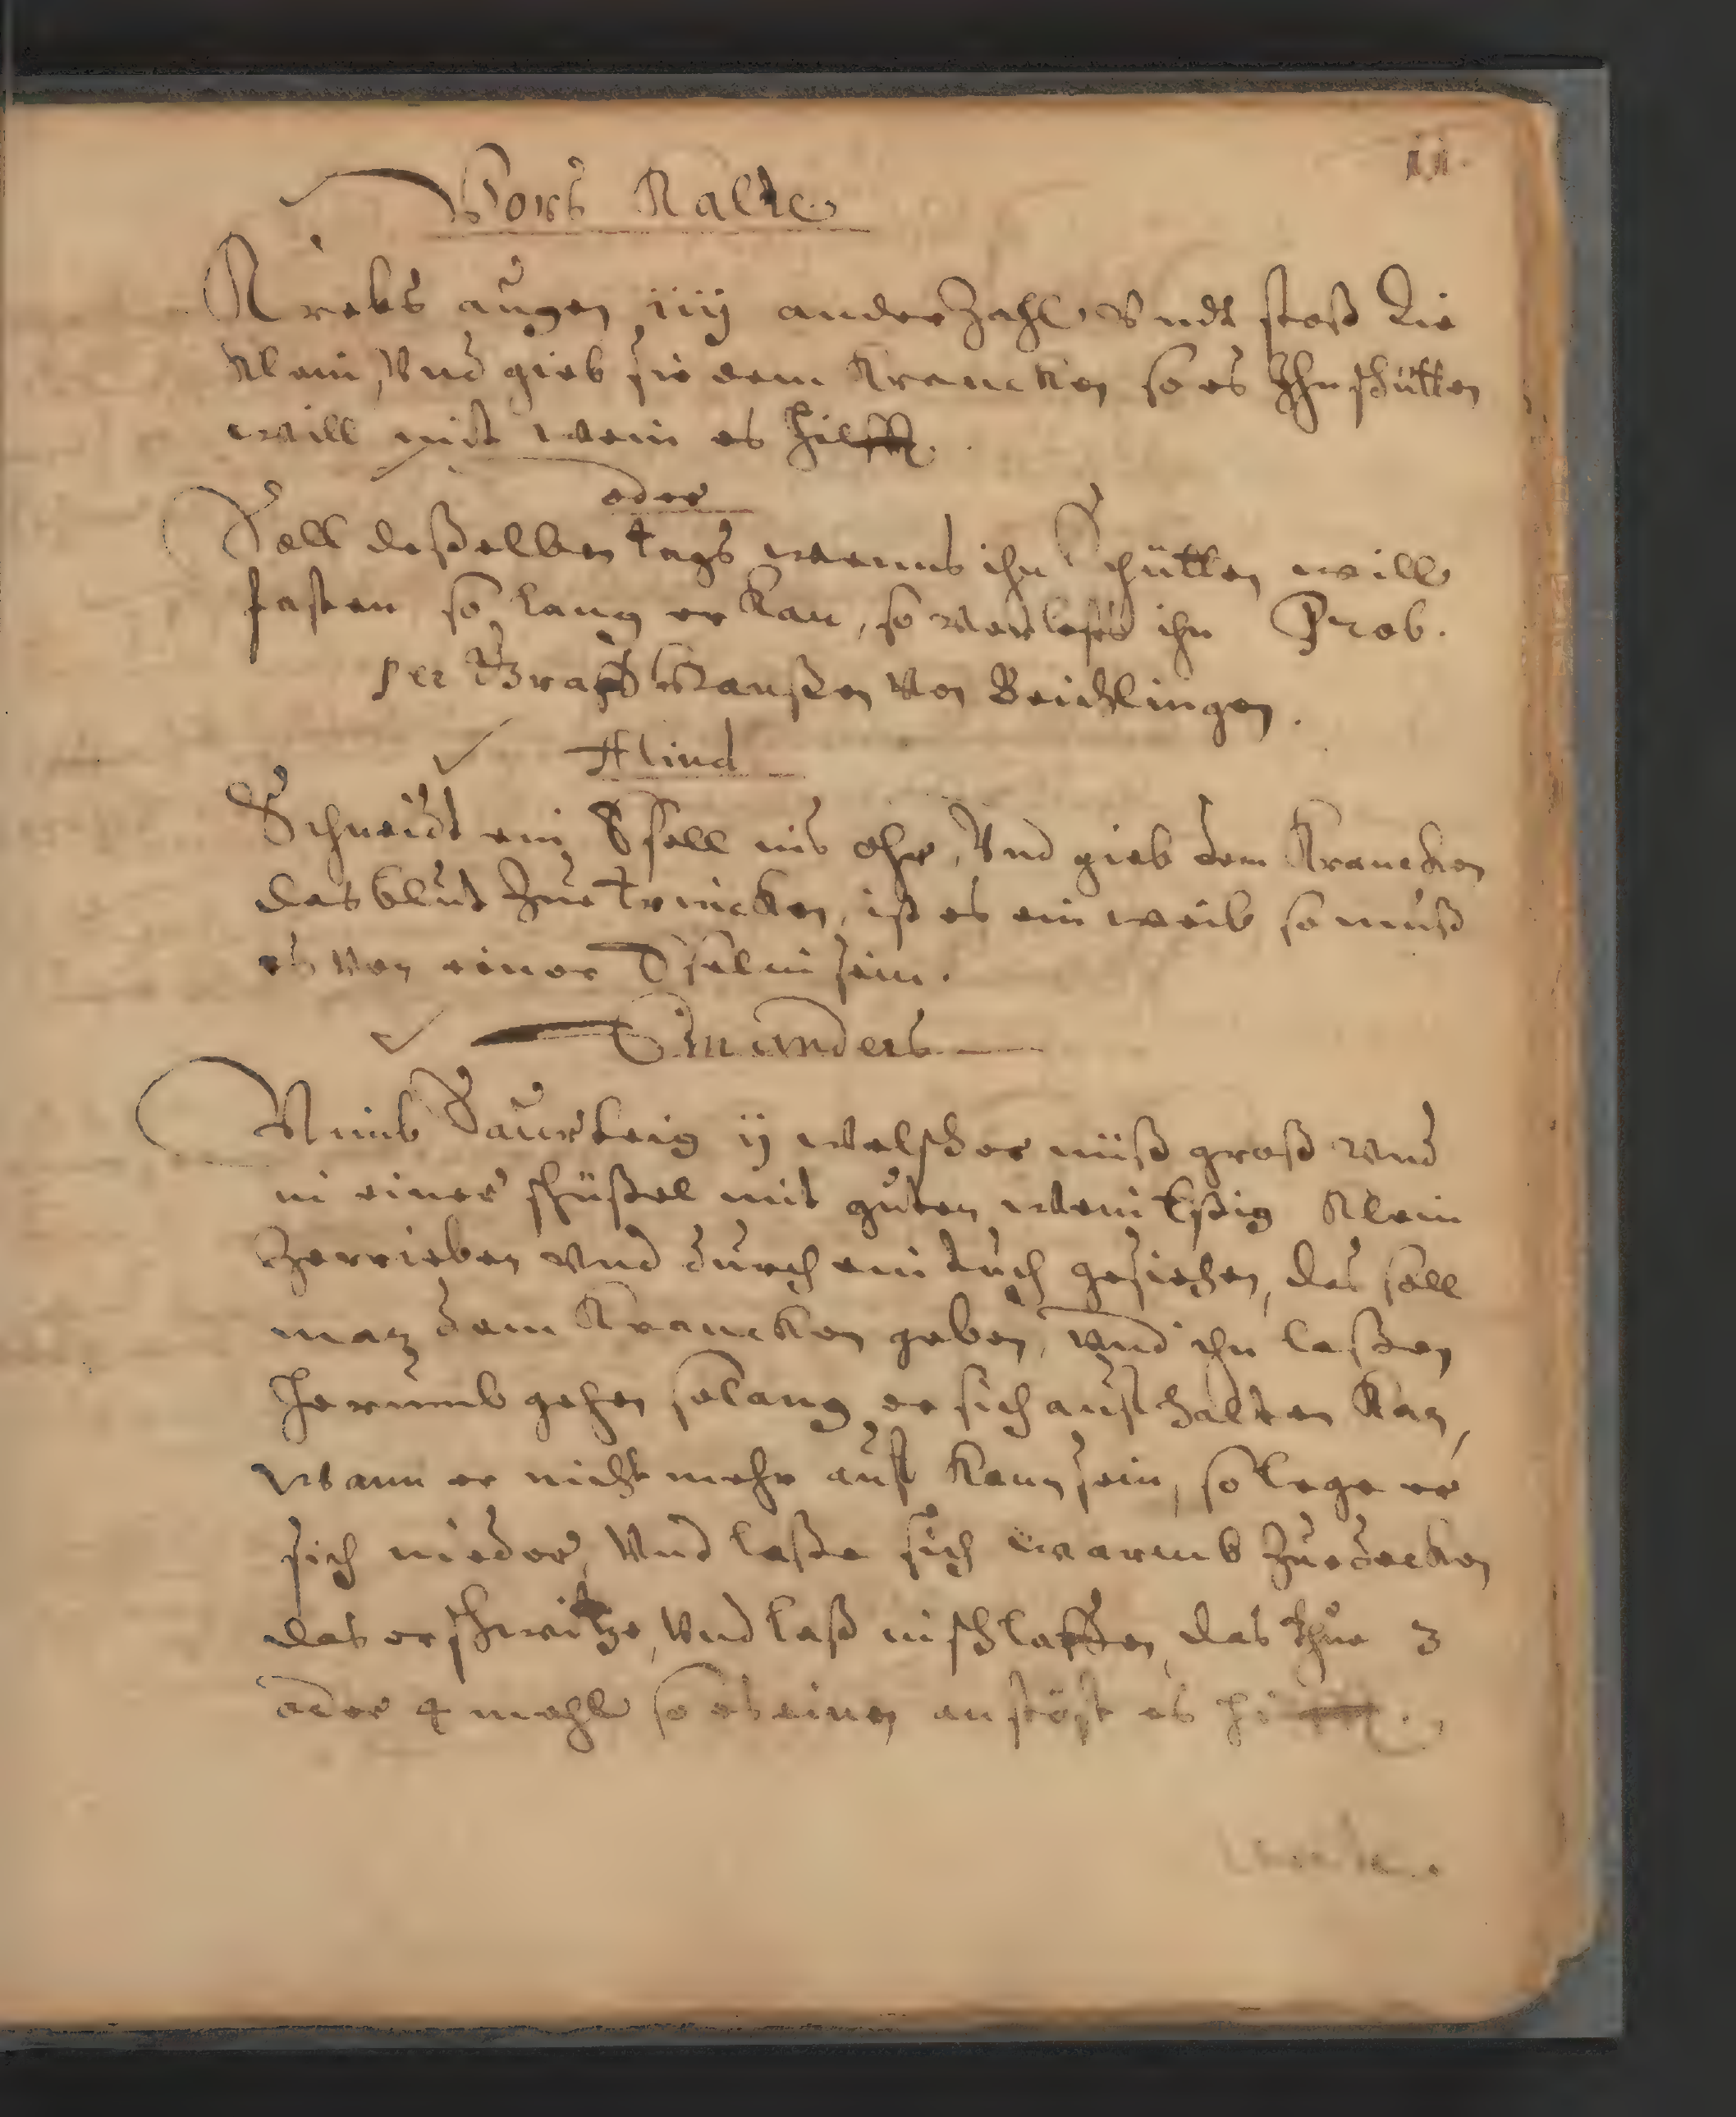 11.
Vors Kalte
Krebs augen iiij ander Zahl, Vndt stoß die
klein, Vnd gieb sie dem Krancken so es Ihn schütten
will mit wein es hilfft.
oder
Soll deßelben tags wenns ihn Schütten will
fasten so lang er kan, so verlests ihn Prob.
per Graff Hanßen von Beichlingen.
Aliud
Schneidt ein Esell ins ohr, Vnd gieb dem Krancken
das blut Zue trincken, ist es ein weib so muß
es von einer Eselin sein.
Ein anders
Nimb Saurteig ij welscher nüß groß vnd
in einer schüßel mit guten wein Eßig klein
Zerrieben vnd durch ein tuch gesiehen, das soll
man dem Krancken geben, vnd ihn laßen
herumb gehen solang er sich auff halten kan,
wann er nicht mehr auff kan sein, so lege er
sich nieder, Vnd laße sich warmb Zuedecken
das er schwitze, Vnd laß in schlaffen, das thue 3
oder 4 mahl so es einen anstöst es hilfft.